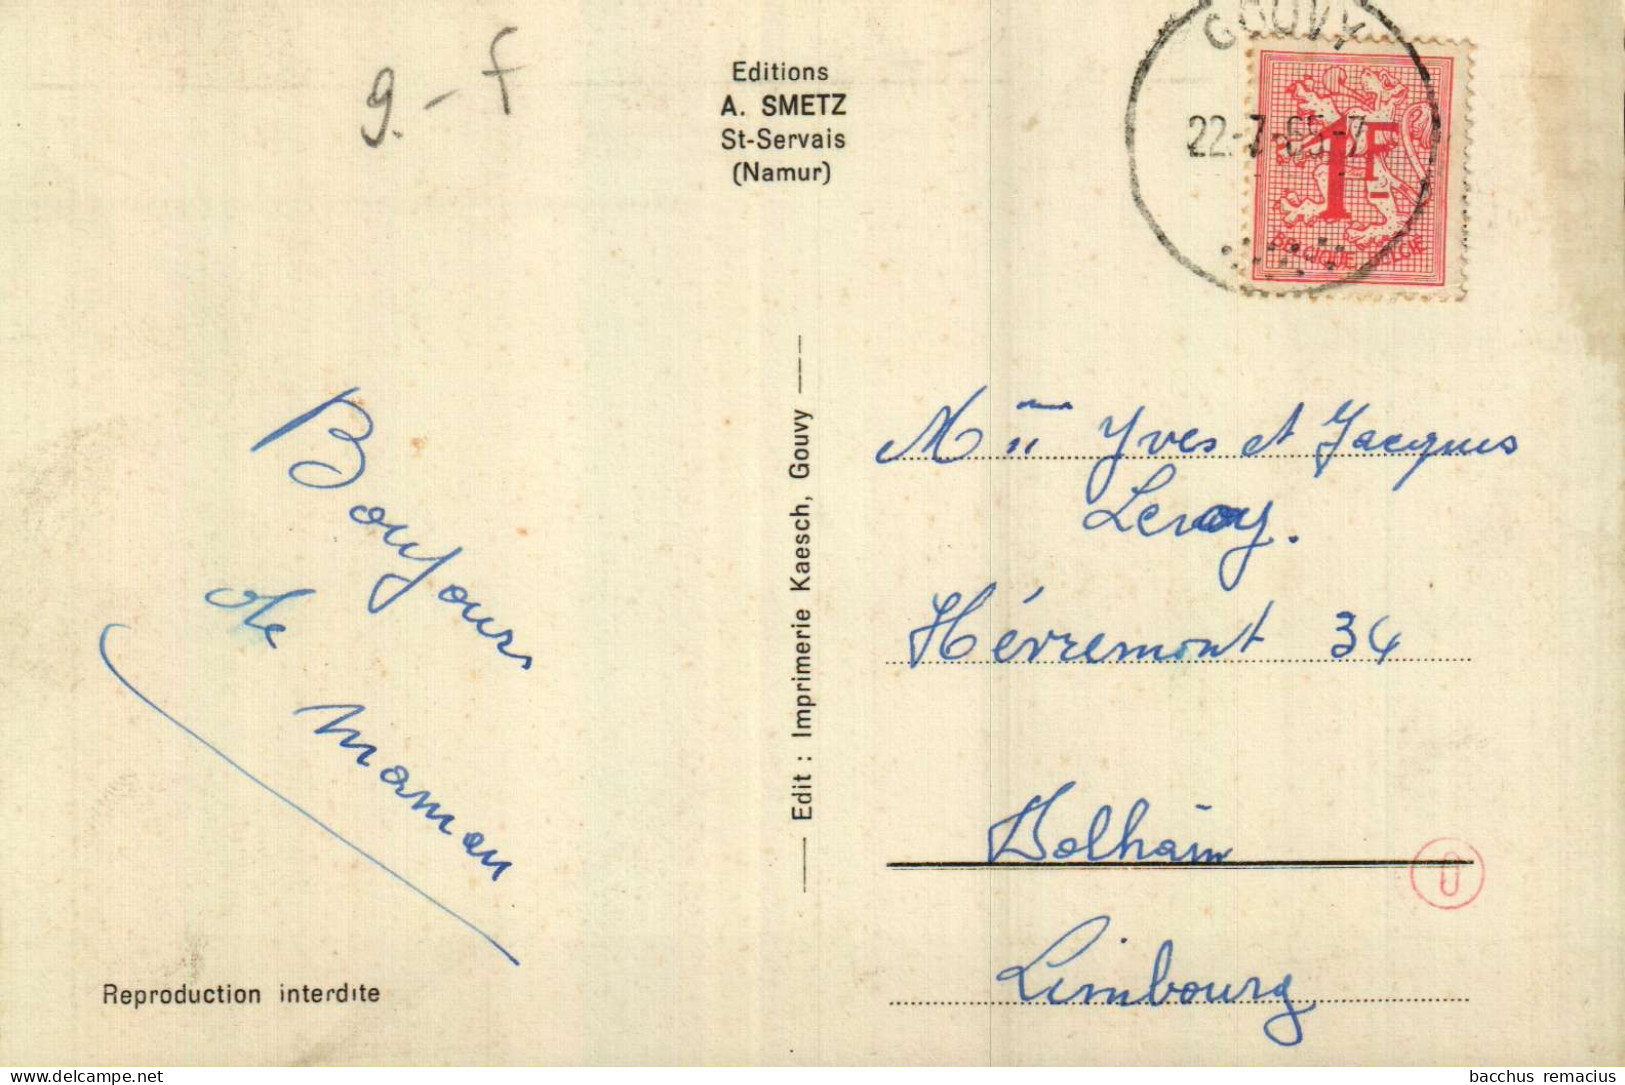 g. - f
Editions
A. SMETZ
St-Servais
(Namur)
GOUVY
22-7-65-7
1F
BELGIQUE BELGIE
Bonjour
de
maman
Edit : Imprimerie Kaesch, Gouvy
Yves et Jacques
Leroy.
Hévremont 34
Dolhain
Limbourg
Reproduction interdite
bacchus remacius